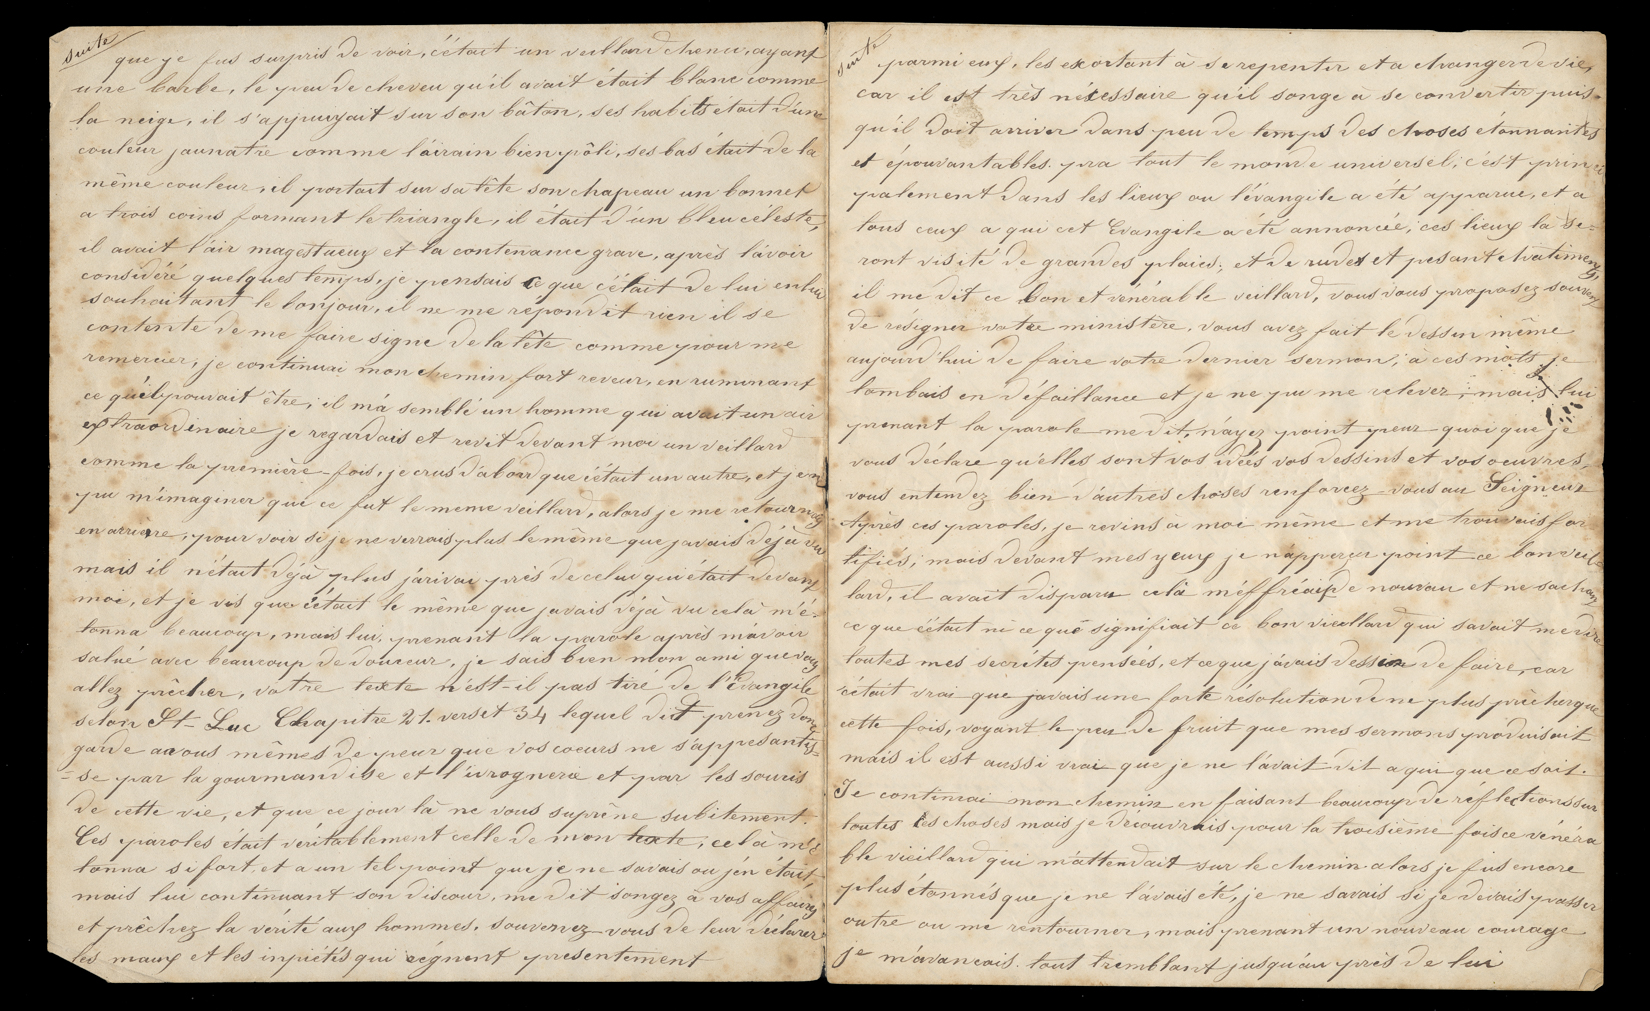 suite
que je fus surpris de voir, c'était un veillard chenu, ayant
une barbe, le peu de cheveu qu'il avait était blanc comme
la neige, il s'appuyait sur son bâton, ses habits était d'une
couleur jaunatre comme l'airain bien pôli, ses bas était de la
même couleur, il portait sur sa tête son chapeau un bonnet
a trois coins formant le triangle, il était d'un bleu céleste,
il avait l'air magestueux et la contenance grave, après l'avoir
considéré quelques temps, je pensais ce que c'était de lui en lui
souhaitant le bonjour, il ne me répondit rien il se
contente de me faire signe de la tête comme pour me
remercier, je continuai mon chemin fort reveur, en ruminant
ce qu'il pouvait être, il m'a semblé un homme qui avait un air
extraordinaire je regardais et revit devant moi un veillard
comme la première fois, je crus d'abord que c'était un autre, et je n
pu m'imaginer que ce fut le meme veillard, alors je me retournay
en arriere, pour voir si je ne verrais plus le même que javais déjà vu
mais il n'était déjà plus j'arivai près de celui qui était devant
moi, et je vis que c'était le même que javais déjà vu cela m'é-
tonna beaucoup, mais lui, prenant la parole après m'avoir
salué avec beaucoup de douceur, je sais bien mon ami que vous
allez prêcher, votre texte n'est-il pas tire de l'Évangile
selon St- Luc Chapitre 21. verset 34 lequel dit prenez donc
garde a vous mêmes de peur que vos coeurs ne s'appesantis-
-se par la gourmandise et l'ivrognerie et par les soucis
de cette vie, et que ce jour là ne vous suprêne subitement.
Ces paroles était véritablement celle de mon texte, cela m'é
tonna si fort, et a un tel point que je ne savais ou j'en étais
mais lui continuant son discour, me dit songez à vos affaires
et prêchez la vérité aux hommes, souvenez-vous de leur déclarer
les maux et les inpiétés qui régnent presentement
suite
parmi eux, les exortant à se repentir et a changer de vie,
car il est très nécessaire qu'il songe à se convertir puis-
qu'il doit arriver dans peu de temps des choses étonnantes
et épouvantables. pra tout le monde universel, c'est princi
palement dans les lieux ou l'évangile a été apparue, et a
tous ceux a qui cet Evangile a été annoncée, ces lieux là se-
ront visité de grandes plaies, et de rudes et pesant chatiments,
il me dit ce bon et vénérable veillard, vous vous proposez souvent
de résigner votre ministère, vous avez fait le dessin même
aujourd'hui de faire votre dernier sermon, a ces mots je
tombais en défaillance et je ne pu me relever, mais lui
prenant la parole me dit, n'ayez point peur quoi que je
vous déclare qu'elles sont vos idées vos dessins et vos oeuvres,
vous entendez bien d'autres choses renforcez-vous au Seigneur
Après ces paroles, je revins à moi même et me trouvais for
tifiés, mais devant mes yeux je n'apperçu point ce bon veil-
lard, il avait disparu cela m'éffréaie de nouveau et ne sachan
ce que c'était ni ce que signifiait ce bon vieillard qui savait me dire
toutes mes secrètes pensées, et ce que j'avais dessin de faire, car
c'était vrai que javais une forte résolution de ne plus prêcher que
cette fois, voyant le peu de fruit que mes sermons produisait
mais il est aussi vrai que je ne l'avait dit a qui que ce soit.
Je continuai mon chemin en faisant beaucoup de réflections sur
toutes ces choses mais je découvrais pour la troisième fois ce vénéra
ble vieillard qui m'attendait sur le chemin. alors je fus encore
plus étonnés que je ne l'avais eté, je ne savais si je devais passer
outre ou me rentourner, mais prenant un nouveau courage
je m'avancais tout tremblant jusqu'au près de lui